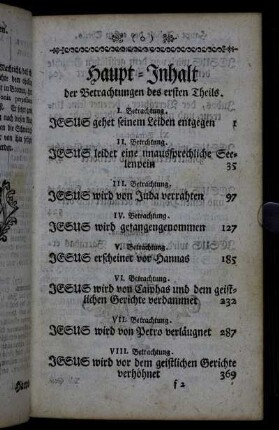 ( o )
Haupt-Inhalt
der Betrachtungen des ersten Theils.
I. Betrachtung.
JESUS gehet seinem Leiden entgegen 1
II. Betrachtung.
JESUS leidet eine unaussprechliche See-
lenpein 35
III. Betrachtung.
JESUS wird von Juda verrahten 97
IV. Betrachtung.
JESUS wird gefangengenommen 127
V. Betrachtung.
JESUS erscheinet vor Hannas 185
VI. Betrachtung.
JESUS wird von Caiphas und dem geist-
lichen Gerichte verdammet 232
VII. Betrachtung.
JESUS wird von Petro verläugnet 287
VIII. Betrachtung.
JESUS wird vor dem geistlichen Gerichte
verhöhnet 369
f 2